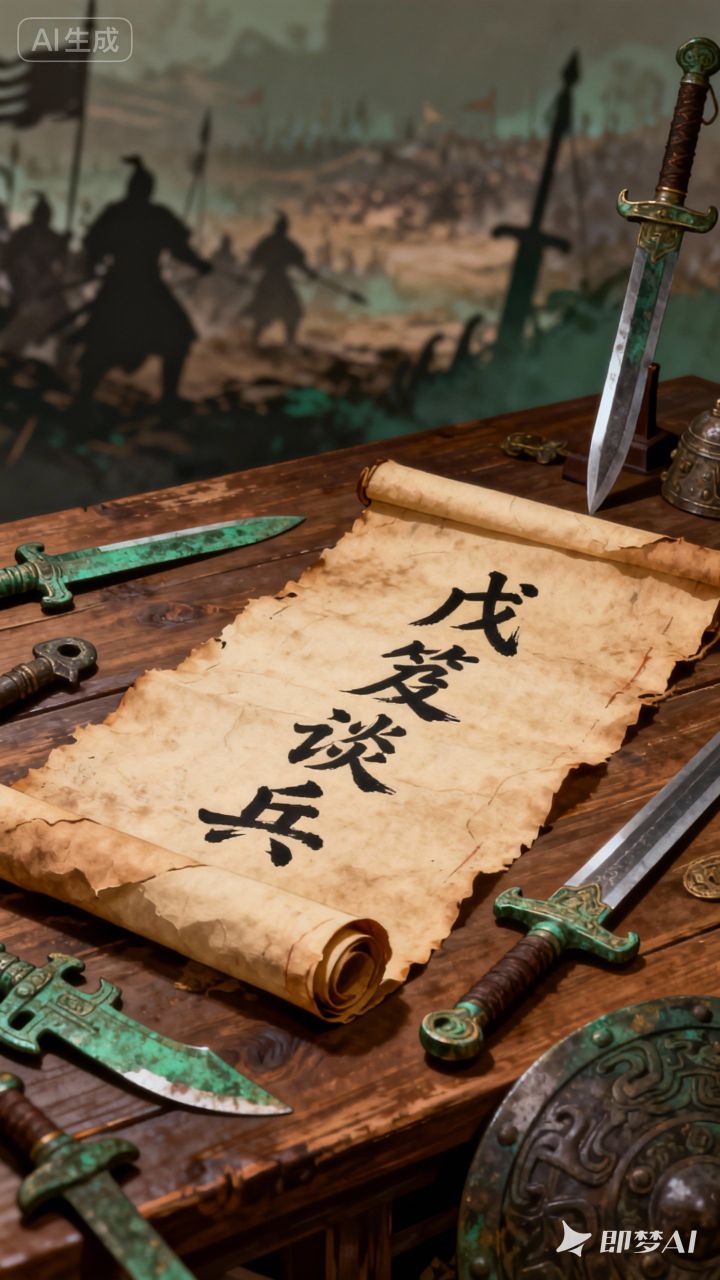 AI生成
戊笈谈兵
即梦AI